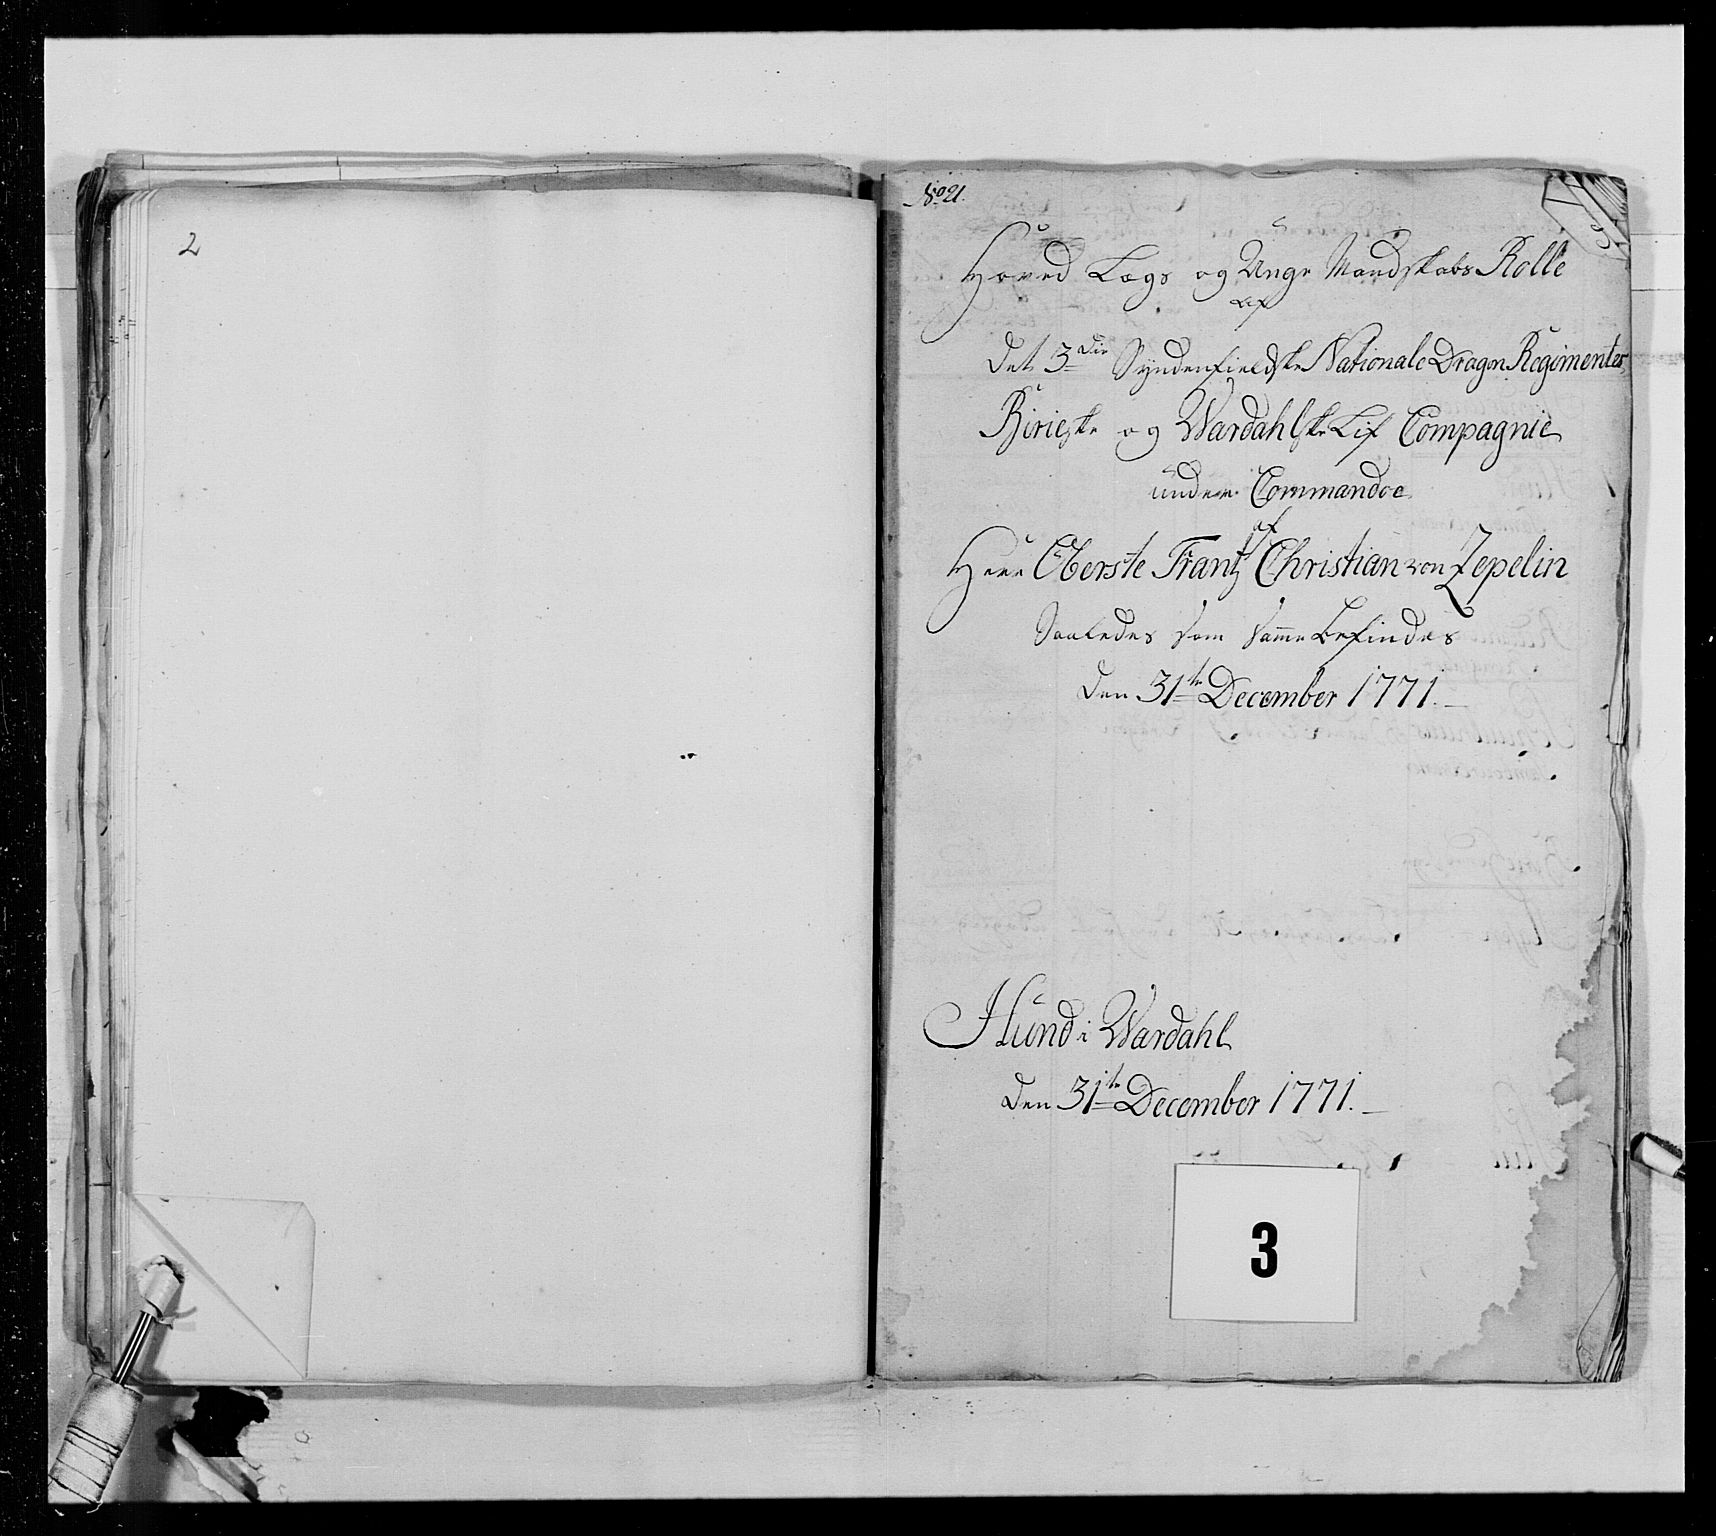 2
No 21.
Hoved Lægs og Unge Mandskabs Rolle
af
Det 3die Syndenfieldske Nationale Dragon Regimentes
Birieske og Wardahlske Lif Compagnie
under Commandoe
af
Herr Oberste Frantz Christian von Zepelin
Saaledes som samme befindes
den 31te December 1771.
Hund i Wardahl
den 31te December 1771.
3